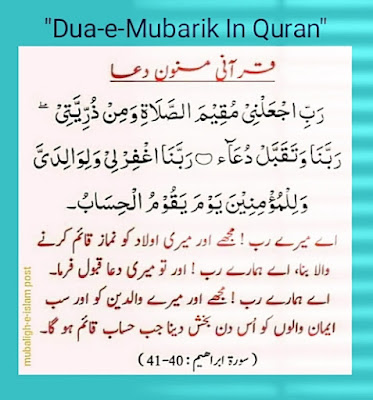 "Dua-e-Mubarik In Quran"
قرآنی مسنون دعا
رَبِّ اجْعَلْنِیْ مُقِیْمَ الصَّلَاۃِ وَمِنْ ذُرِّیَّتِیْ ۖ
رَبَّنَا وَتَقَبَّلْ دُعَآءِ ○ رَبَّنَا اغْفِرْ لِیْ وَلِوَالِدَیَّ
وَلِلْمُؤْمِنِیْنَ یَوْمَ یَقُوْمُ الْحِسَابُ۔
اے میرے رب! مجھے اور میری اولاد کو نماز قائم کرنے
والا بنا، اے ہمارے رب! اور تو میری دعا قبول فرما۔
اے ہمارے رب! مجھے اور میرے والدین کو اور سب
ایمان والوں کو اُس دن بخش دینا جب حساب قائم ہو گا۔
(سورۃ ابراھیم: 40-41)
mubaligh-e-islam post